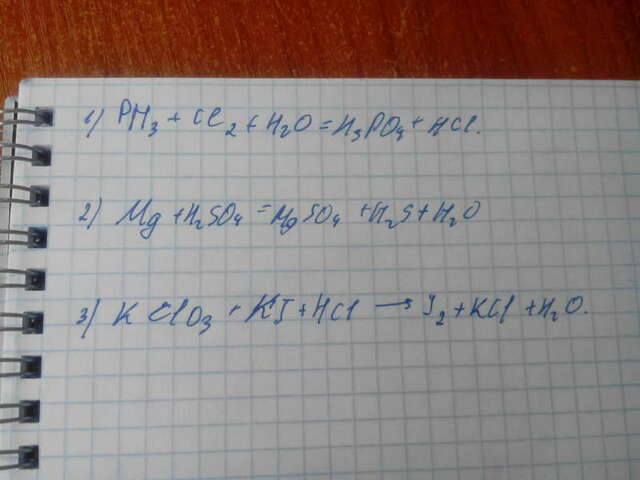 1) PH₃ + Cl₂ + H₂O = H₃PO₄ + HCl.
2) Mg + H₂SO₄ = MgSO₄ + H₂S + H₂O
3) KClO₃ + KJ + HCl → J₂ + KCl + H₂O.